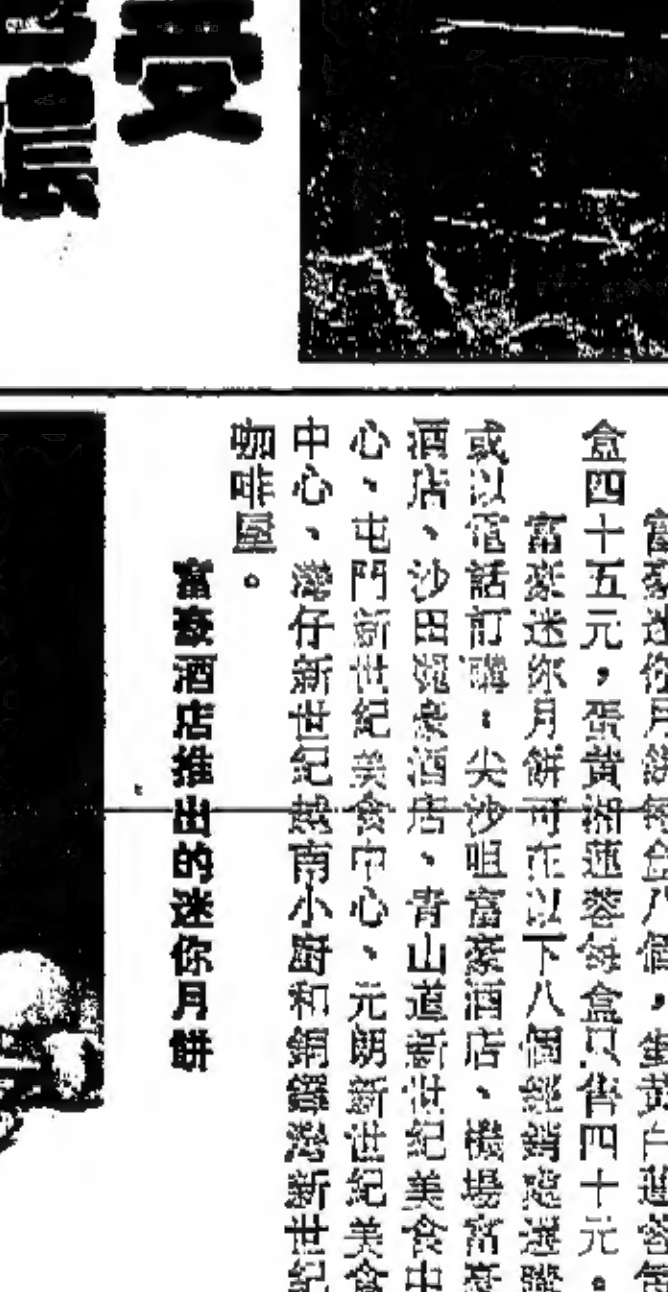 受
富豪迷你月餅每盒八個，蛋黃白蓮蓉每
盒四十五元，蛋黃湘蓮蓉每盒只售四十元。
富豪迷你月餅可在以下八個經銷處選購
或以電話訂購：尖沙咀富豪酒店、機場富豪
酒店、沙田麗豪酒店、青山道新世紀美食中
心、屯門新世紀美食中心、元朗新世紀美食
中心、灣仔新世紀越南小廚和銅鑼灣新世紀
咖啡屋。
富豪酒店推出的迷你月餅